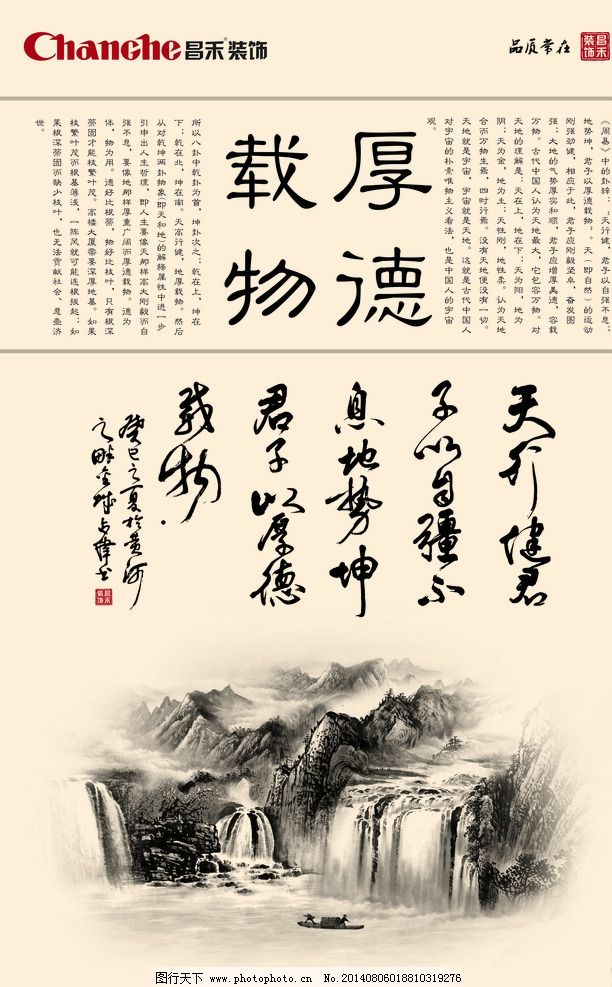 Changhe 昌禾装饰
品质常在
昌禾装饰
厚德
载物
《周易》中的卦辞:天行健,君子以自强不息;
地势坤,君子以厚德载物;。天(即自然)的运动
刚强劲健,相应于此,君子应刚毅坚卓,奋发图
强;大地的气势厚实和顺,君子应增厚美德,容载
万物。古代中国人认为天地最大,它包容万物。对
天地的理解是:天在上,地在下;天为阳,地为
阴;天为金,地为土;天性刚,地性柔。认为天地
合而万物生焉,四时行焉。没有天地便没有一切。
天地就是宇宙,宇宙就是天地。这就是古代中国人
对宇宙的朴素唯物主义看法,也是中国人的宇宙
观。
所以八卦中乾卦为首,坤卦次之;乾在上,坤在
下;乾在北,坤在南。天高行健,地厚载物。然后
从对乾坤两卦物象(即天和地)的解释属性中进一步
引申出人生哲理,即人生要像天那样高大刚毅而自
强不息,要像地那样厚重广阔而厚德载物。德为
体,物为用。德好比根蒂,物好比枝叶,只有根深
蒂固才能枝繁叶茂。高楼大厦需要深厚地基。如果
枝繁叶茂而根基薄浅,一阵风就可能连根拔起;如
果根深蒂固而缺少枝叶,也无法贡献社会、惠悉济
世。
天行健君
子以自疆不
息地势坤
君子以厚德
载物
癸巳之夏于黄河
昌禾装饰
图行天下 www.photophoto.cn No.20140806018810319276